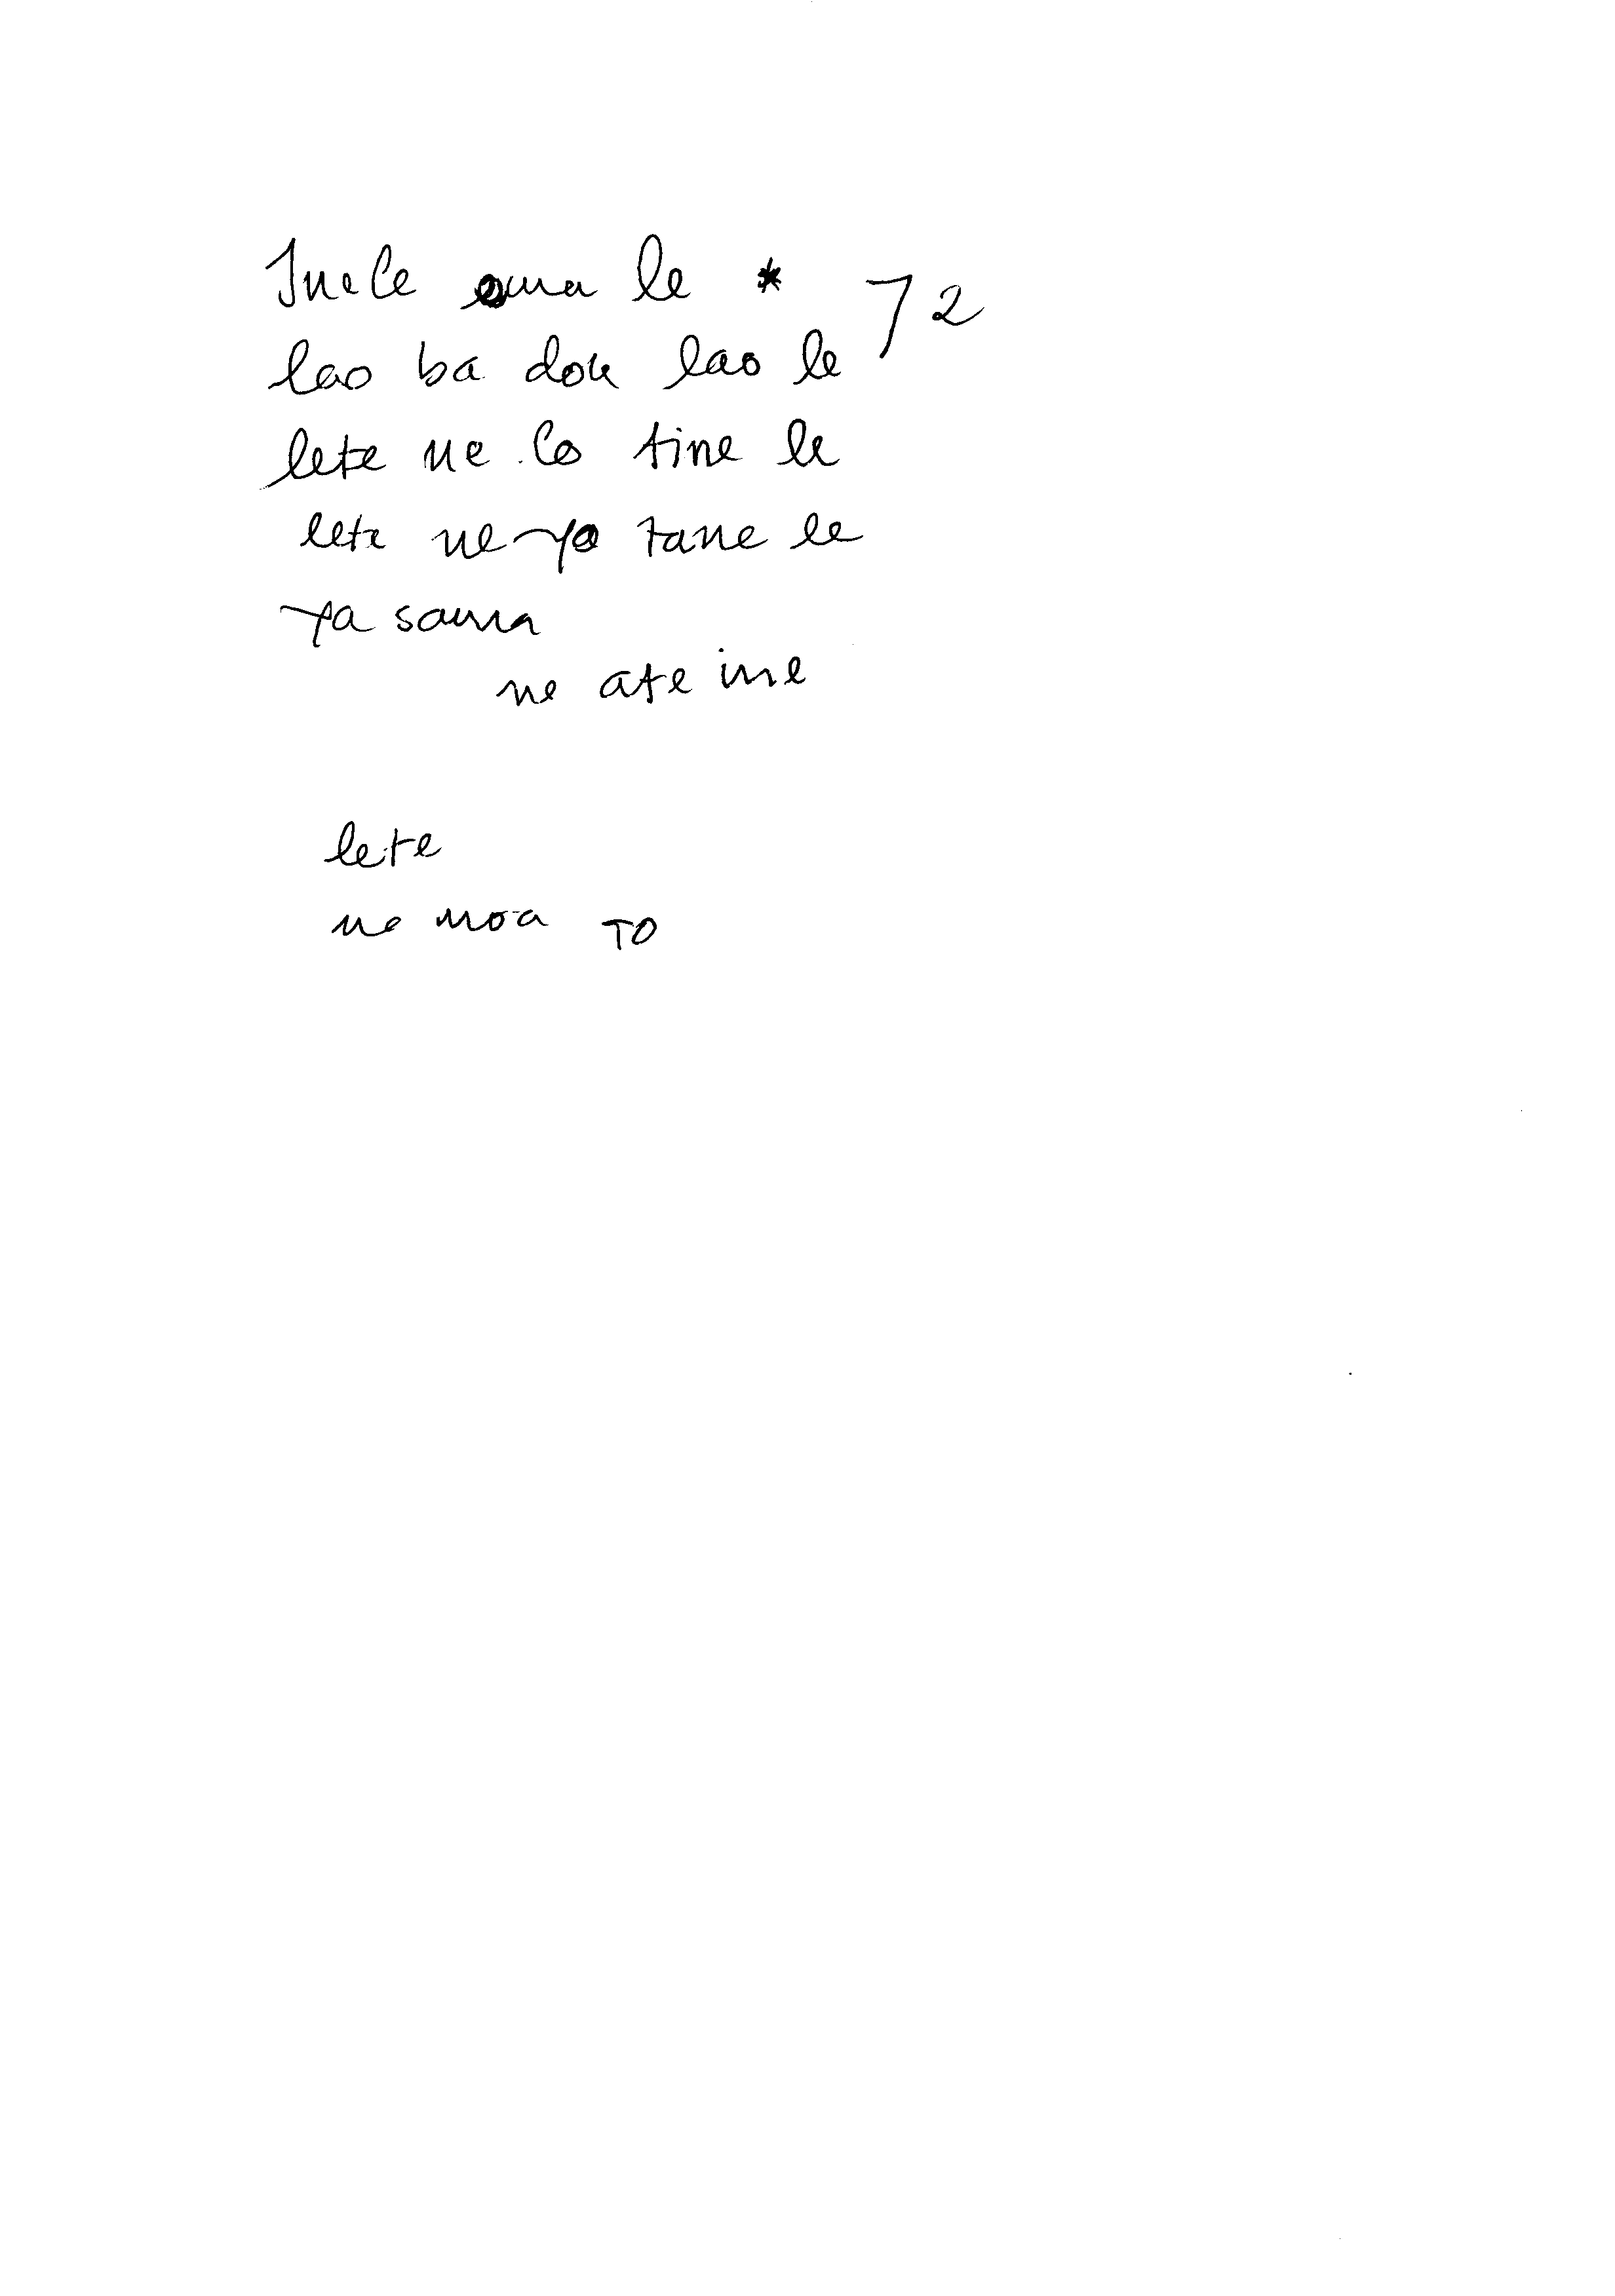 Inele oma le * 72
lao ba dou lao le
lete ne lo tine le
lete ne yo tane le
ya sama
ne ate ine
lete
ne moa TO